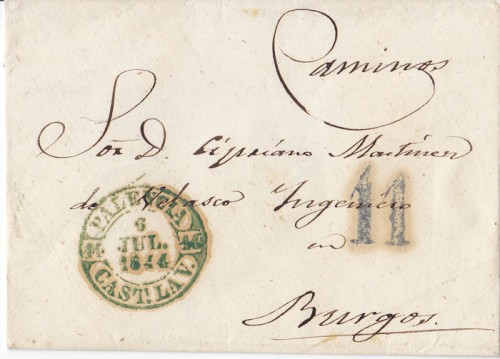 Caminos
Sor. D. Cipriano Martinez
de Velasco Ingeniero
en
Burgos.
11
PALENCIA
6
JUL.
1844
CAST. LA V.